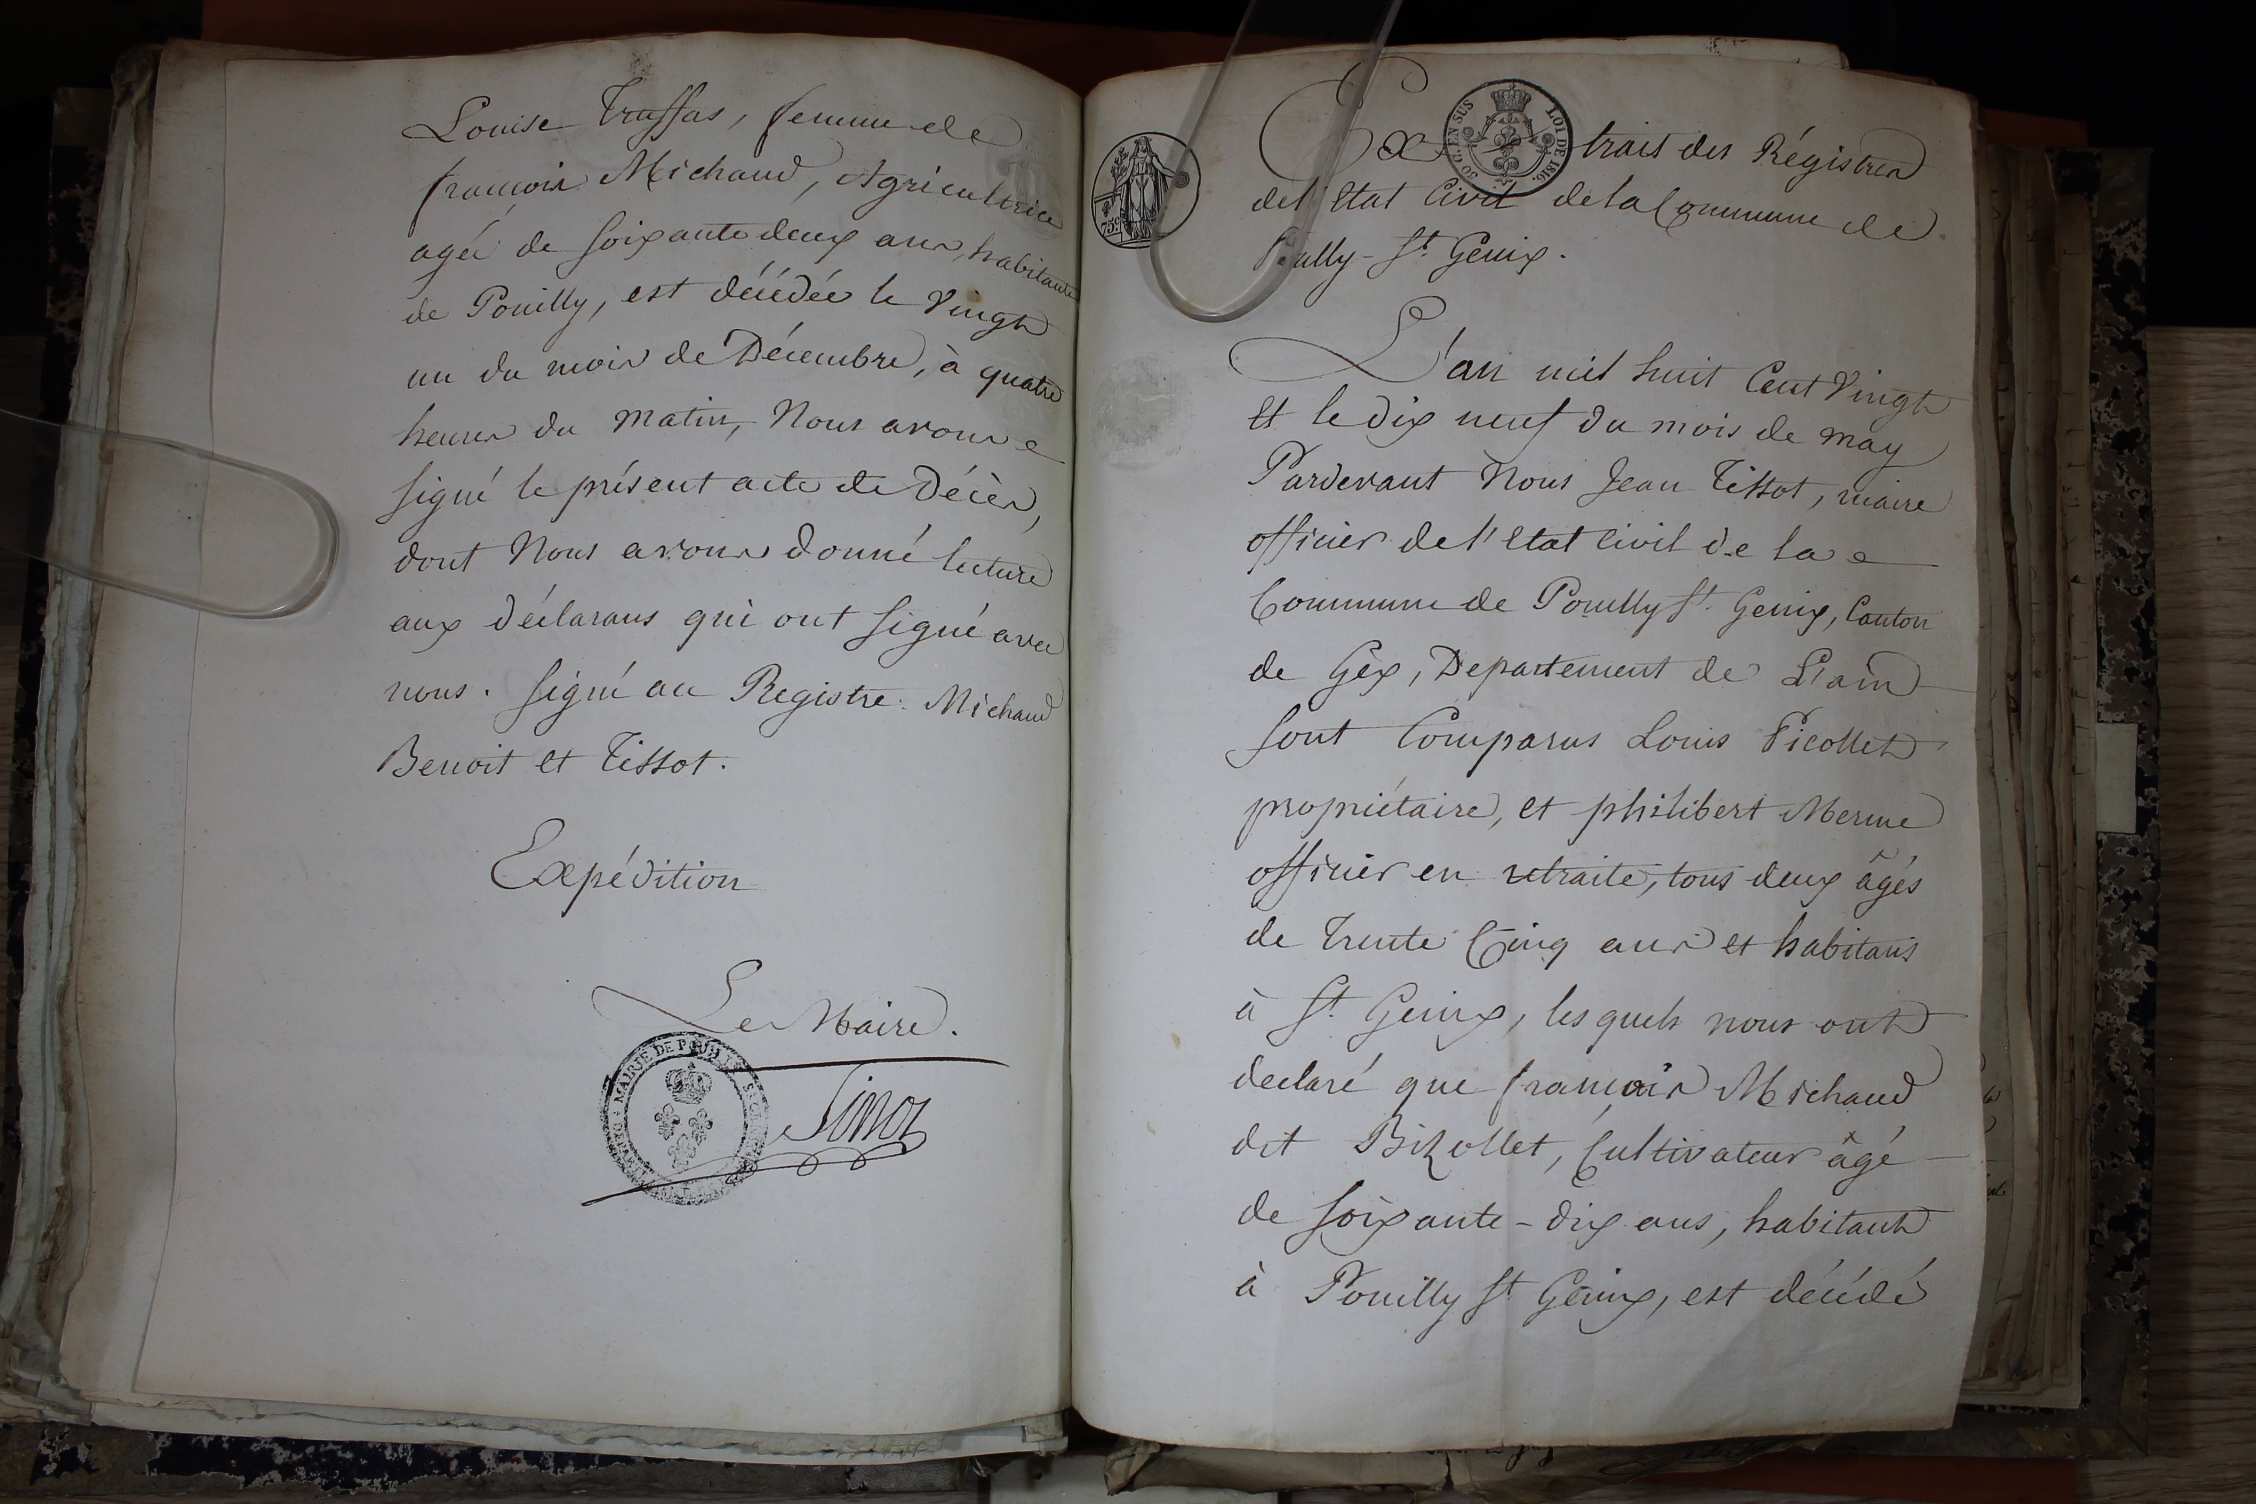 Louise Truffas, femme de
françois Michaud, Agricultrice
agée de soixante deux ans, habitante
de Pouilly, est décédée le Vingt
un du mois de Décembre, à quatre
heures du matin, Nous avons
signé le présent acte de Décès,
dont Nous avons donné lecture
aux déclarans qui ont signé avec
nous. signé au Registre. Michaud
Benoit et Tissot.
Expédition
Le Maire.
MAIRIE DE POUILLY
Tissot
50 C. EN SUS LOI DE 1816.
75c.
Extrait des Régistres
de l'Etat Civil de la Commune de
Pouilly-St. Genix.
L'an mil huit Cent Vingt
et le dix neuf du mois de may
Pardevant Nous Jean Tissot, maire
officier de l'Etat Civil de la
Commune de Pouilly St. Genix, Canton
de Gèx, Departement de L'ain
sont Comparus Louis Picollet
propriétaire, et philibert Merme
officier en retraite, tous deux âgés
de Trente Cinq ans et habitans
à St. Genix, les quels nous ont
declaré que françois Michaud
dit Bizollet, Cultivateur âgé
de soixante-dix ans, habitant
à Pouilly St Genix, est décédé